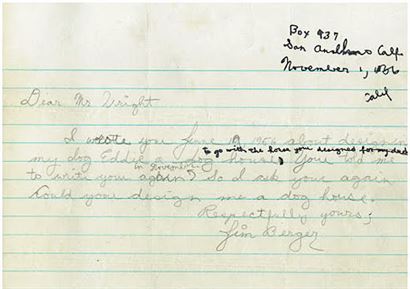 Box 437
San Anselmo Calf.
November 1, 1956
Dear Mr Wright
I wrote you June 19 1956 about designing
to go with the house you designed for my dad.
my dog Eddie a dog house, You told me
in November
to write you again? So I ask you again
Could you design me a dog house.
Respectfully yours,
Jim Berger